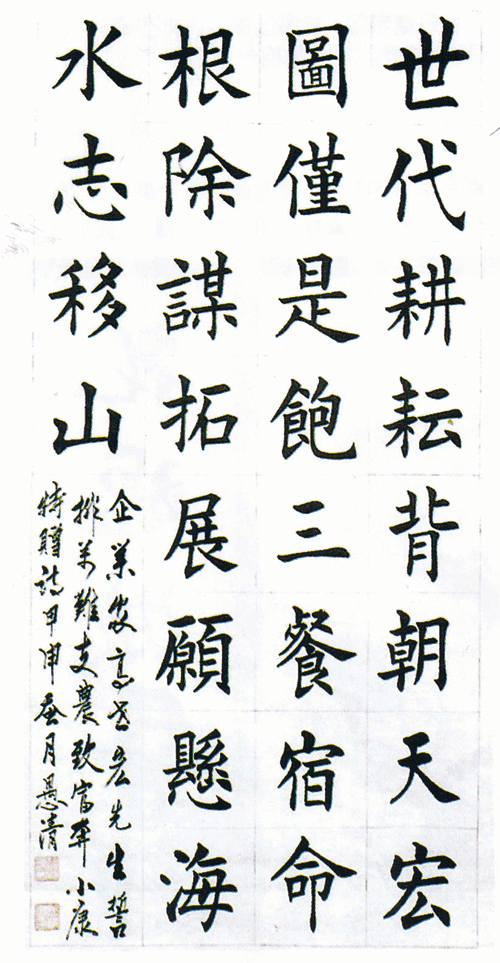 世代耕耘背朝天宏
圖僅是飽三餐宿命
根除謀拓展願懸海
水志移山
企業家高
先生誓
排萬難支農致富奔小康
特贈詩甲申蚕月愚清